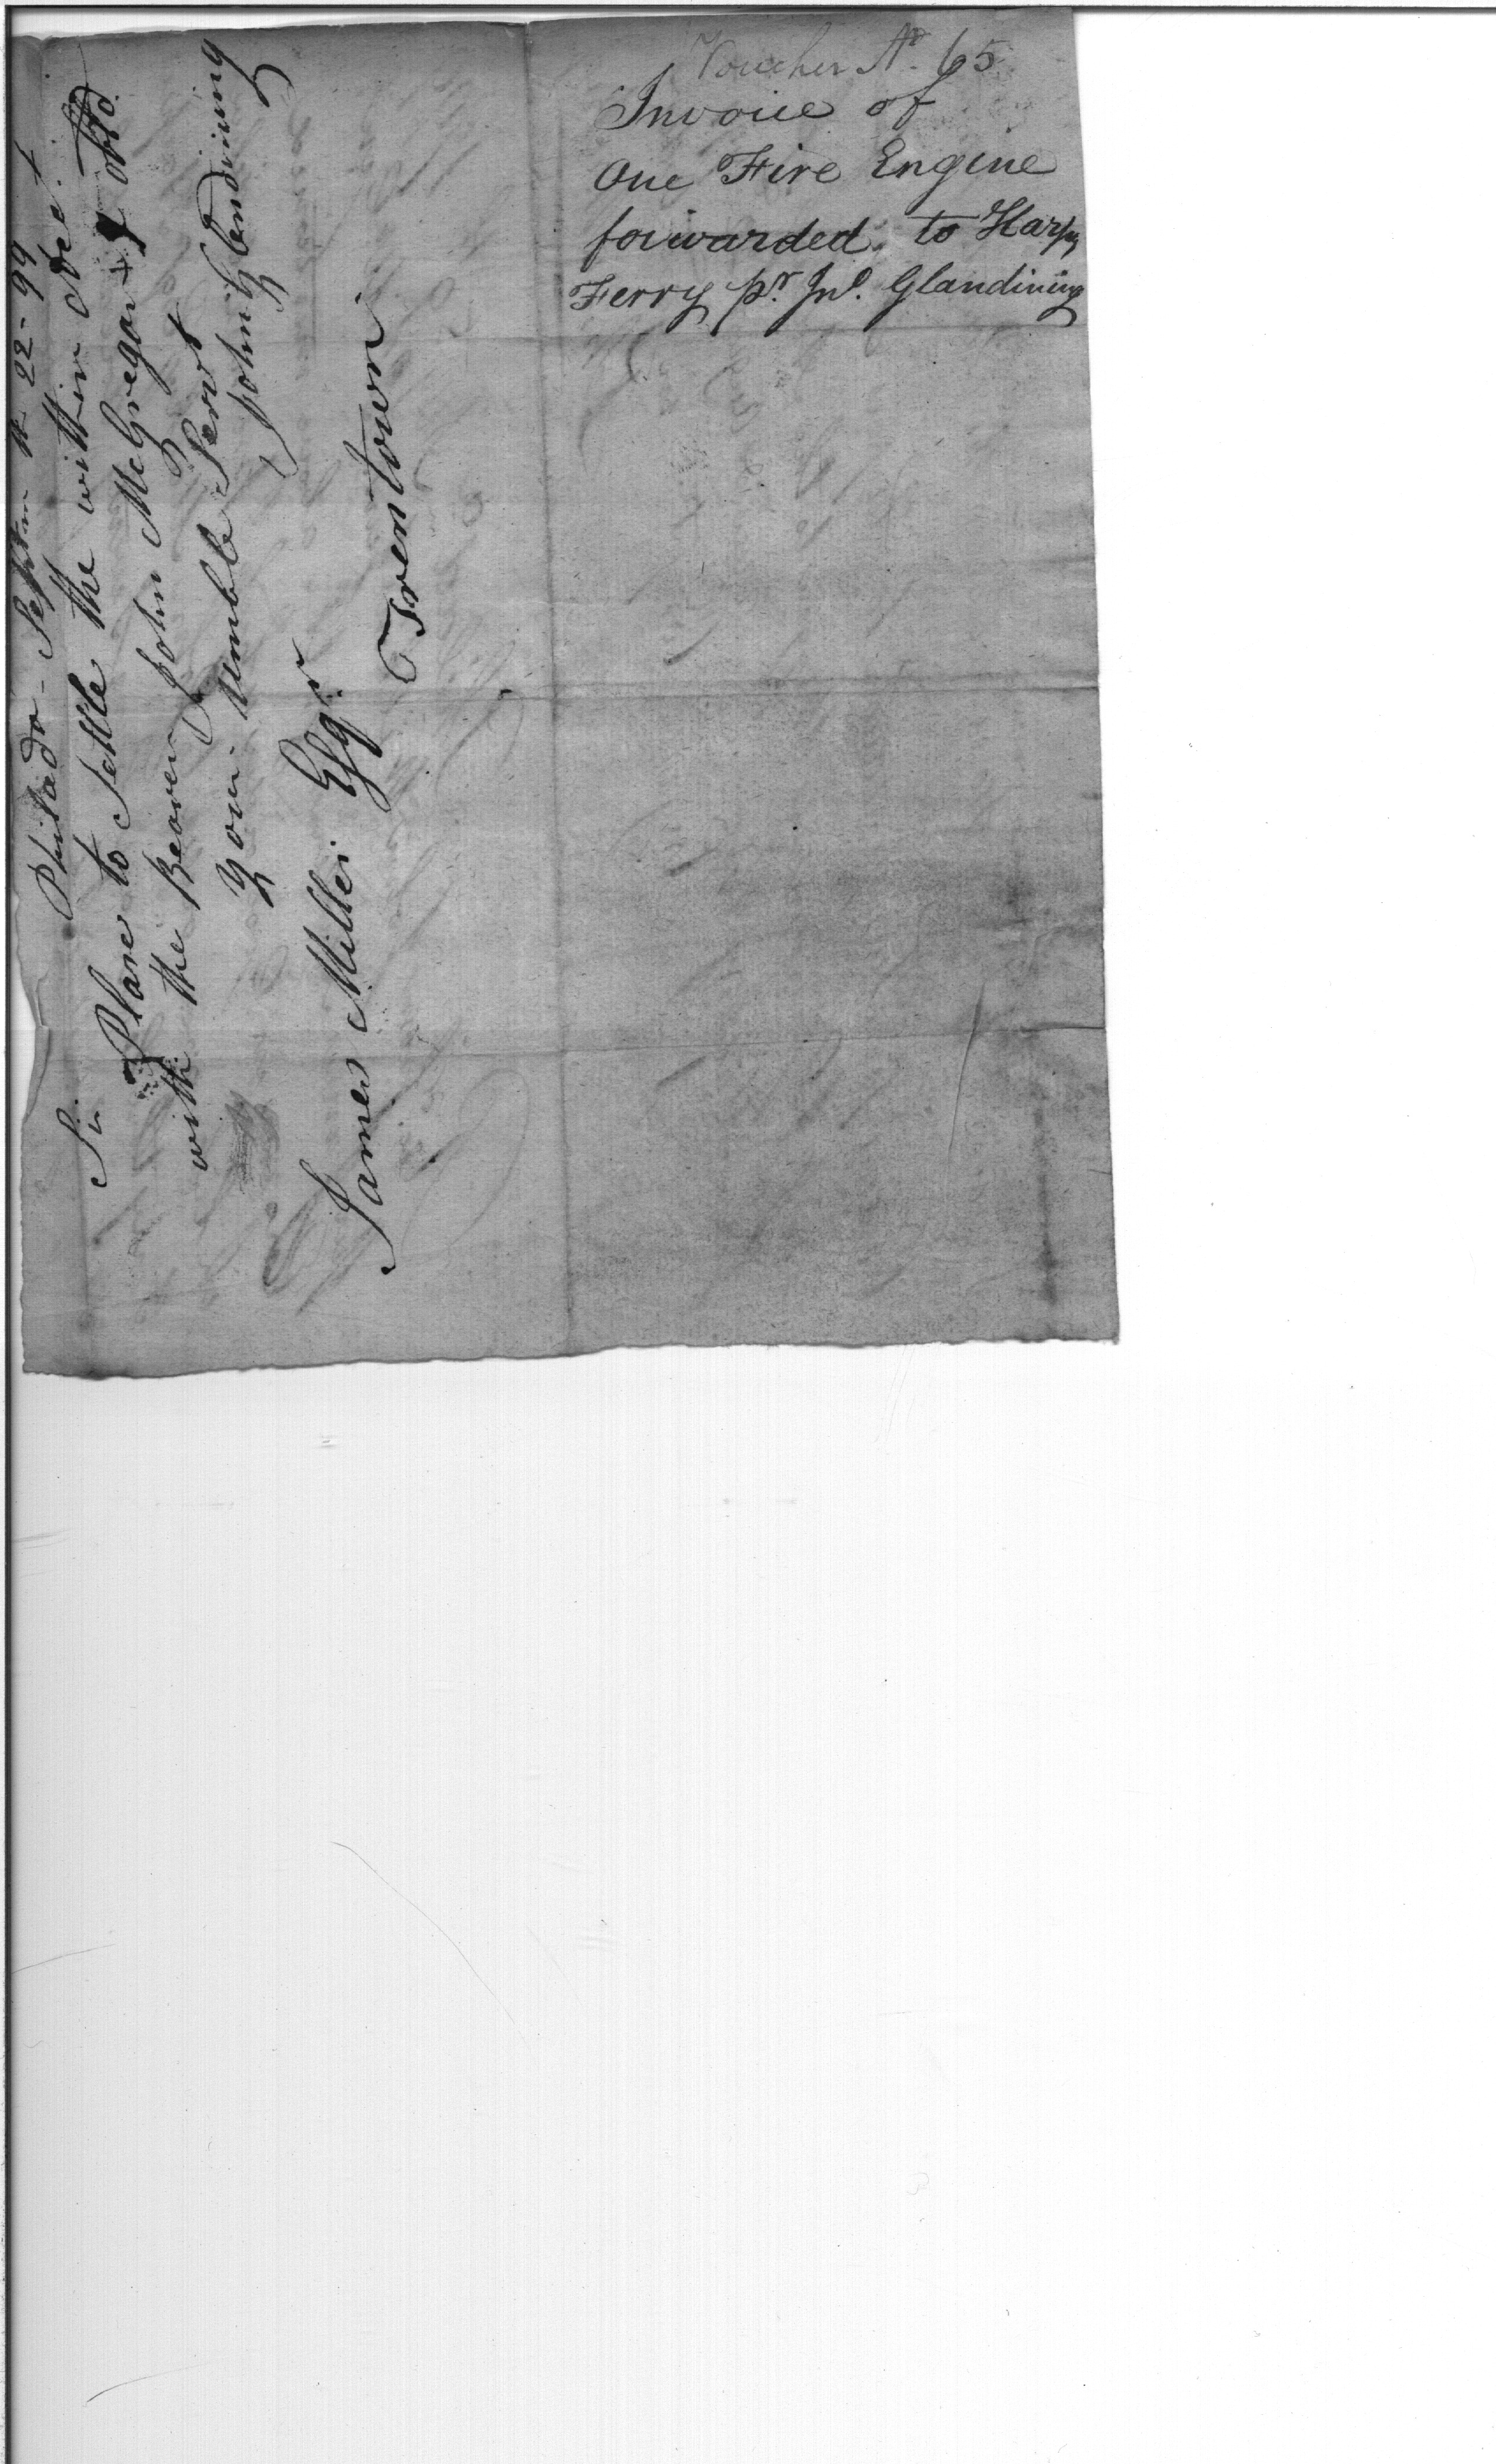 Voucher No. 65
Invoice of
One Fire Engine
forwarded to Harps
Ferry pr. Jno. Glandining
Philada - Septem 22 - 99
Sir
Plase to Settle the within Acct
with the Bearer John McGregar & obld.
your umble Servt
John Glendining
James Miller Esqr
Trentown